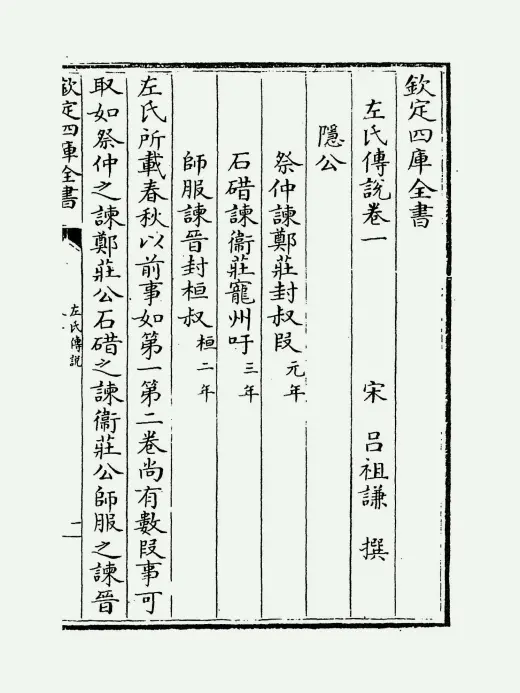 欽定四庫全書
左氏傳說卷一
宋 吕祖謙 撰
隱公
祭仲諫鄭莊封叔段 元年
石碏諫衞莊寵州吁 三年
師服諫晉封桓叔 桓二年
左氏所載春秋以前事如第一第二卷尚有數段事可
取如祭仲之諫鄭莊公石碏之諫衞莊公師服之諫晉
欽定四庫全書
左氏傳說
一